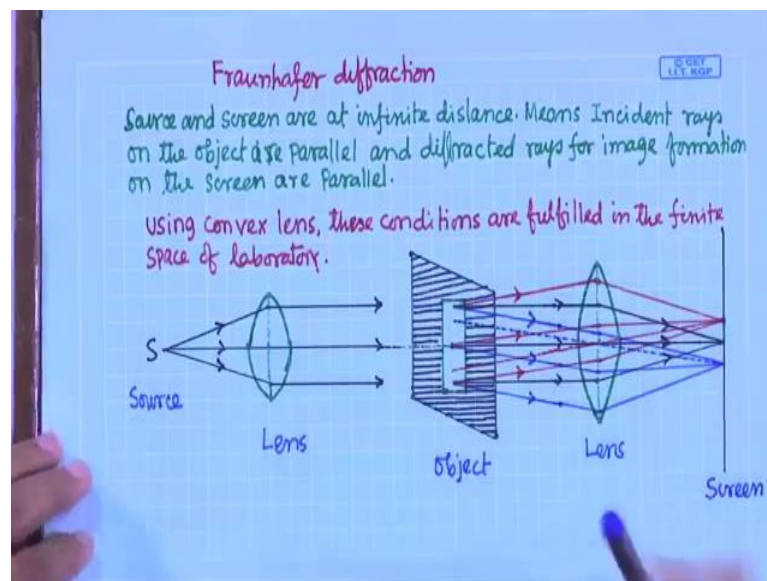 Fraunhafer diffraction
© CET
I.I.T. KGP
Source and screen are at infinite distance. Means Incident rays
on the object are parallel and diffracted rays for image formation
on the screen are parallel.
using convex lens, these conditions are fulfilled in the finite
space of laboratory.
S
Source
Lens
object
Lens
Screen